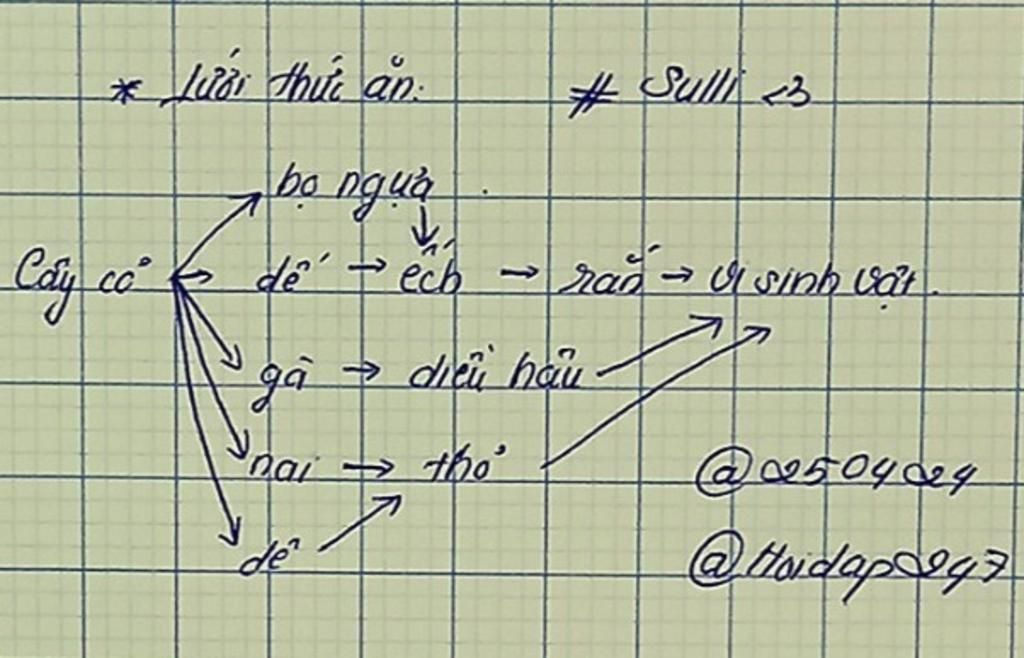 * Lưới thức ăn: # Sulli <3
bọ ngựa
Cây cỏ → dế → ếch → rắn → vi sinh vật.
gà → diều hâu
nai → thỏ @250424
dê @Hoidap247